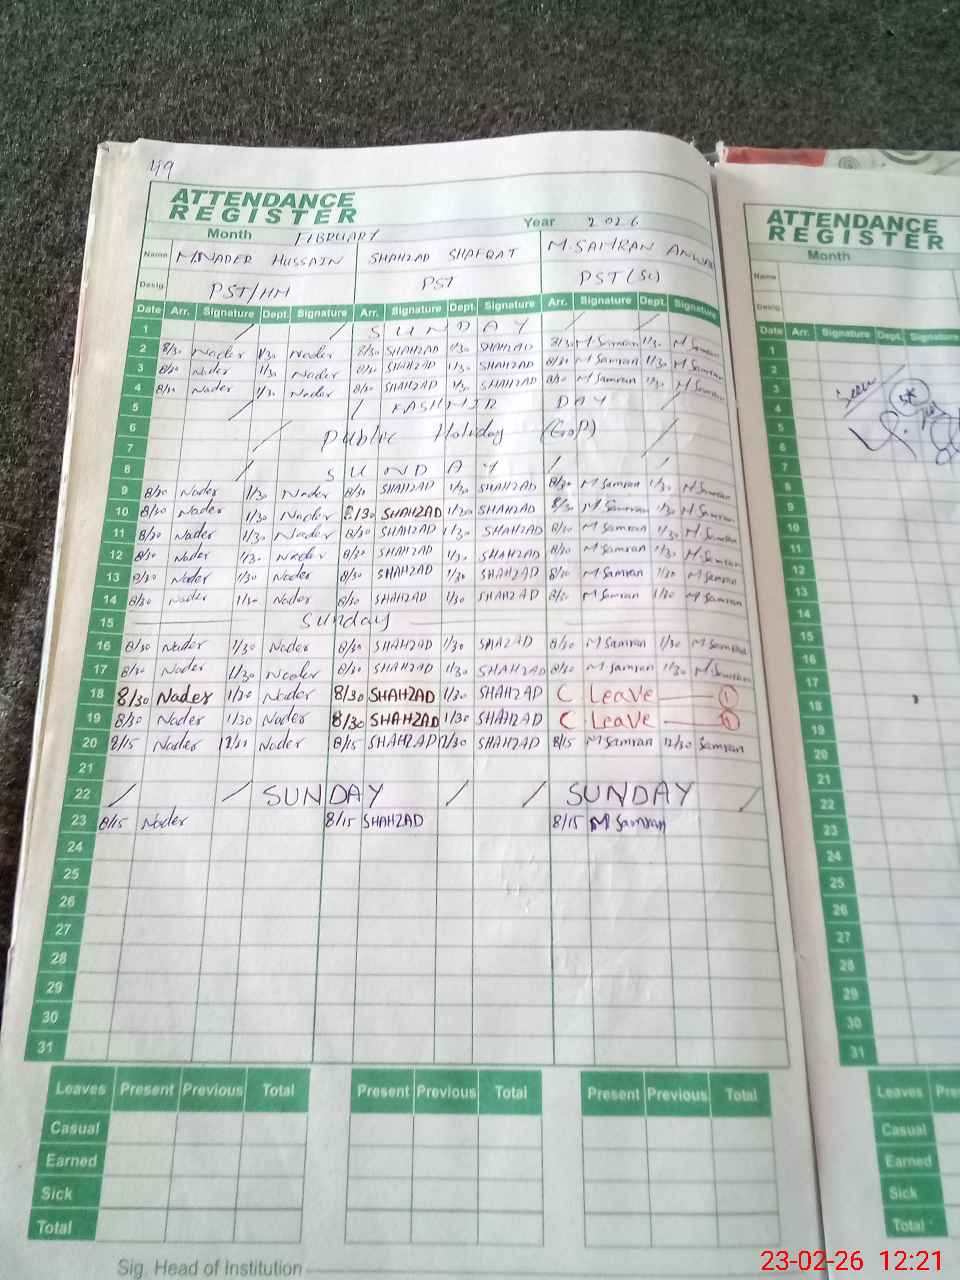 49
ATTENDANCE
REGISTER
Month FIBRUARY Year 2026
Name M.NADER HUSSAIN SHAHZAD SHAFQAT M.SAMRAN ANWAR
Desig. PST/HM PST PST (Sc)
Date Arr. Signature Dept. Signature Arr. Signature Dept. Signature Arr. Signature Dept. Signature
1 / / SUNDAY / /
2 8/30 Nader 1/30 Nader 8/30 SHAHZAD 1/30 SHAHZAD 8/30 M Samran 1/30 M Samran
3 8/30 Nader 1/30 Nader 8/30 SHAHZAD 1/30 SHAHZAD 8/30 M Samran 1/30 M Samran
4 8/30 Nader 1/30 Nader 8/30 SHAHZAD 1/30 SHAHZAD 8/30 M Samran 1/30 M Samran
5 / / KASHMIR DAY /
6 Public Holiday (GoP)
7 / /
8 / SUNDAY / /
9 8/30 Nader 1/30 Nader 8/30 SHAHZAD 1/30 SHAHZAD 8/30 M Samran 1/30 M Samran
10 8/30 Nader 1/30 Nader 8:30 SHAHZAD 1/30 SHAHZAD 8/30 M Samran 1/30 M Samran
11 8/30 Nader 1/30 Nader 8/30 SHAHZAD 1/30 SHAHZAD 8/30 M Samran 1/30 M Samran
12 8/30 Nader 1/30 Nader 8/30 SHAHZAD 1/30 SHAHZAD 8/30 M Samran 1/30 M Samran
13 8/30 Nader 1/30 Nader 8/30 SHAHZAD 1/30 SHAHZAD 8/30 M Samran 1/30 M Samran
14 8/30 Nader 1/30 Nader 8/30 SHAHZAD 1/30 SHAHZAD 8/30 M Samran 1/30 M Samran
15 Sunday
16 8/30 Nader 1/30 Nader 8/30 SHAHZAD 1/30 SHAZAD 8/30 M Samran 1/30 M Samran
17 8/30 Nader 1/30 Nader 8/30 SHAHZAD 1/30 SHAHZAD 8/30 M Samran 1/30 M Samran
18 8/30 Nader 1/30 Nader 8/30 SHAHZAD 1/30 SHAHZAD C Leave 1
19 8/30 Nader 1/30 Nader 8/30 SHAHZAD 1/30 SHAHZAD C Leave
20 8/15 Nader 12/30 Nader 8/15 SHAHZAD 12/30 SHAHZAD 8/15 M Samran 12/30 Samran
21
22 / / SUNDAY / / SUNDAY /
23 8/15 Nader 8/15 SHAHZAD 8/15 M Samran
24
25
26
27
28
29
30
31
Leaves Present Previous Total Present Previous Total Present Previous Total
Casual
Earned
Sick
Total
Sig. Head of Institution
ATTENDANCE
REGISTER
Month
Name
Desig.
Date Arr. Signature Dept. Signature
1
2
3
4
5
6
7
8
9
10
11
12
13
14
15
16
17
18
19
20
21
22
23
24
25
26
27
28
29
30
31
Leaves
Casual
Earned
Sick
Total
23-02-26 12:21